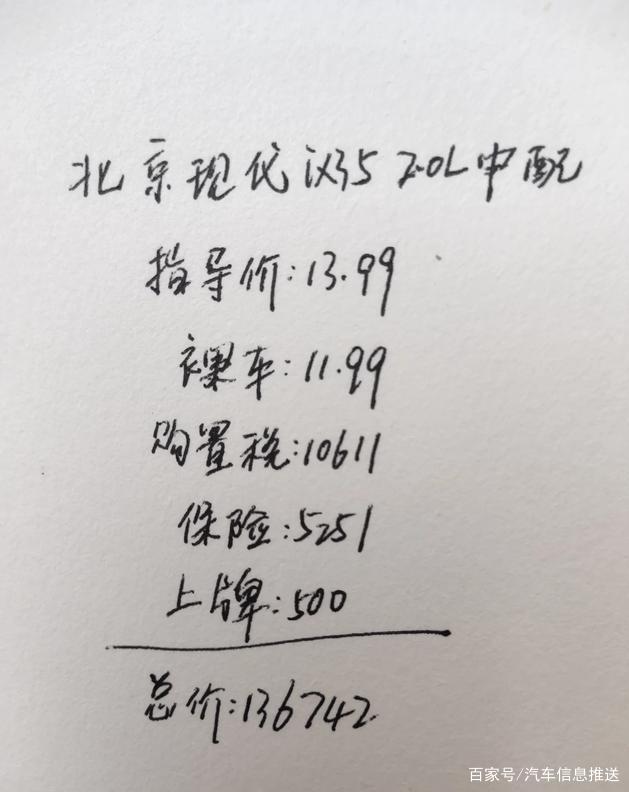 北京现代ix35 2.0L中配
指导价:13.99
裸车:11.99
购置税:10611
保险:5251
上牌:500
总价:136742
百家号/汽车信息推送